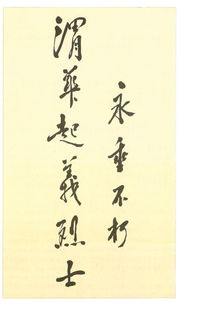 渭华起義烈士
永垂不朽